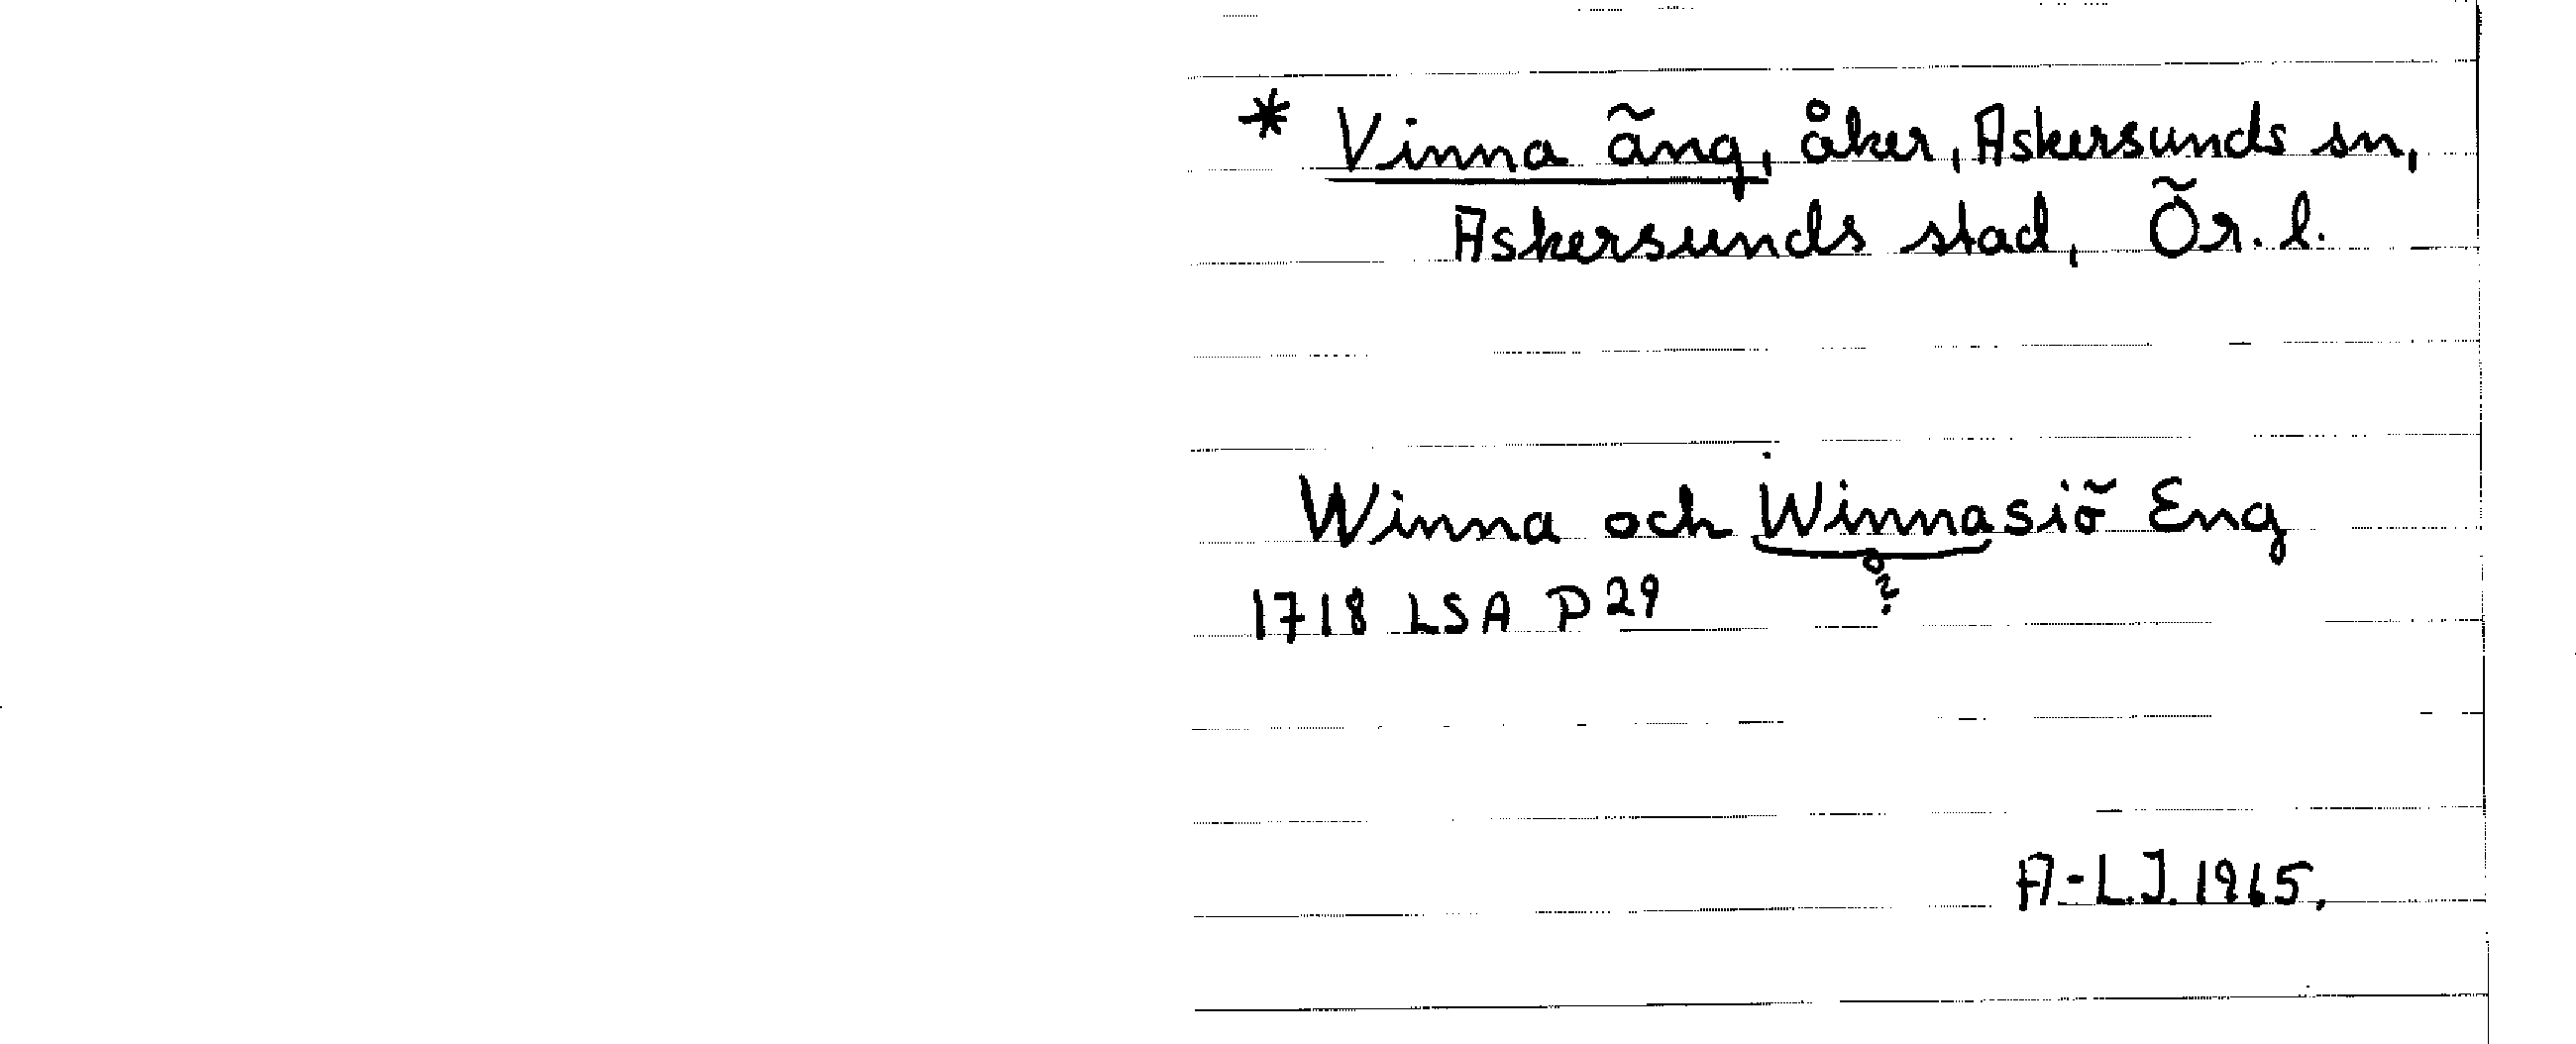 * Vinna äng, åker, Askersunds sn,
Askersunds stad, Ör. l.
Winna och Winnasiö Eng
1718 LSA P 29
A-L.J. 1965.